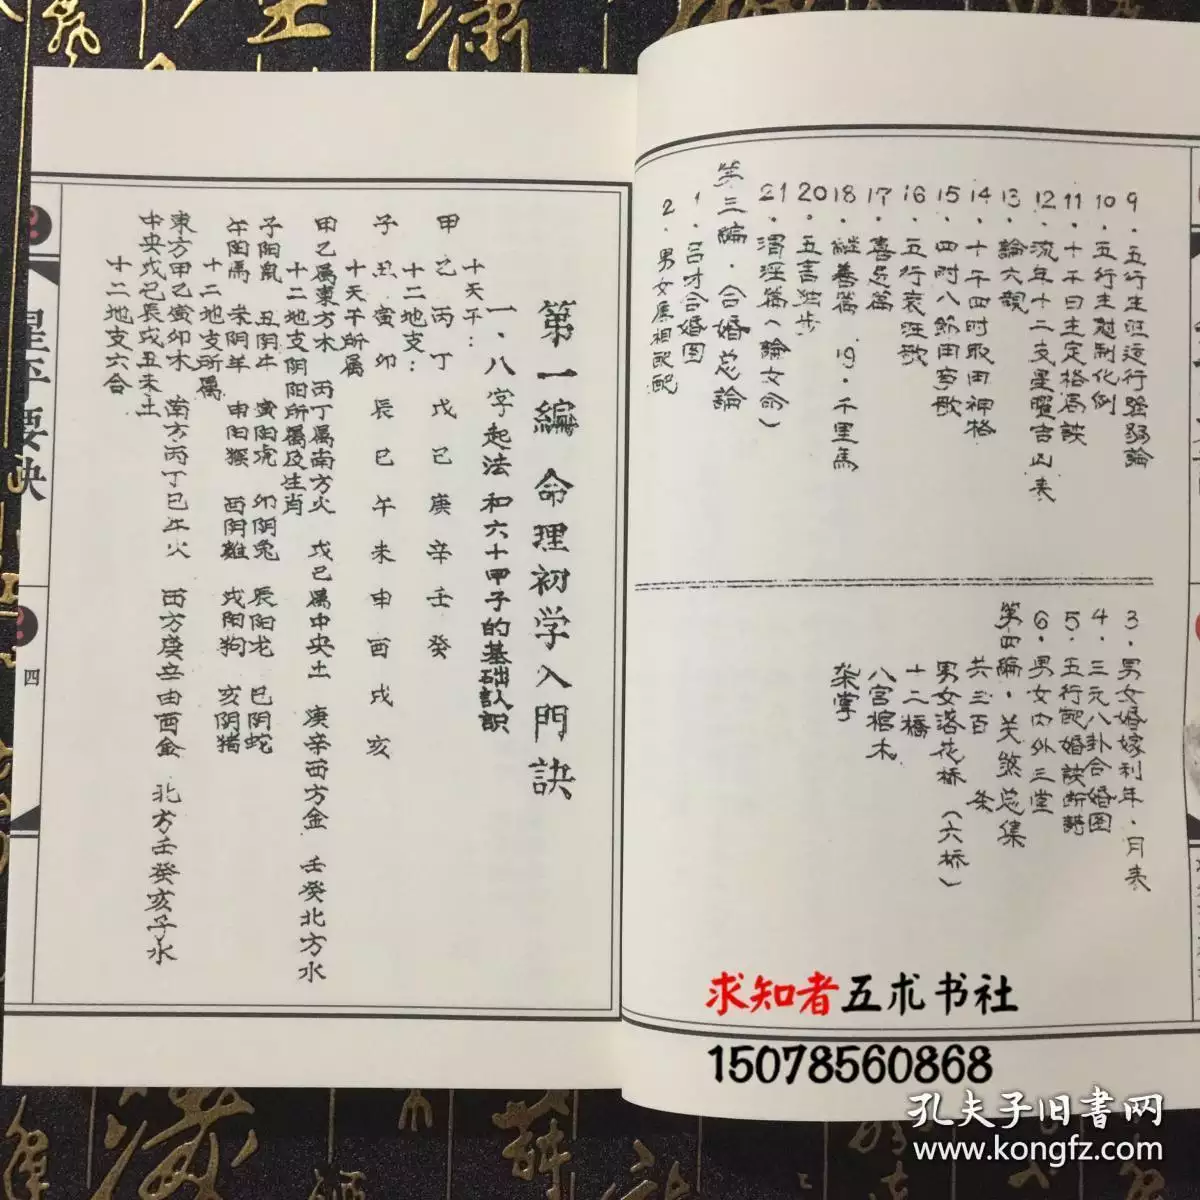 9．五行生旺运行强弱論
10．五行生尅制化例
11．十干日主定格局訣
12．流年十二支星曜吉凶表
13．論六親
14．十干四时取用神格
15．四时八節用事歌
16．五行衰旺歌
17．喜忌篇
18．継善篇 19．千里馬
20．五言独步
21．渭泾篇（論女命）
第三編．合婚总論
1．吕才合婚图
2．男女属相配配
3．男女婚嫁利年．月表
4．三元八卦合婚图
5．五行配婚訣断語
6．男女内外三堂
第四編．关煞总集
共三百 条
男女落花桥（六桥）
十二橋
八宫棺木
架掌
第一編 命理初学入門訣
一．八字起法和六十甲子的基础认识
十天干：
甲乙丙丁戊己庚辛壬癸
十二地支：
子丑寅卯辰巳午未申酉戌亥
十天干所属
甲乙属東方木 丙丁属南方火 戊己属中央土 庚辛西方金 壬癸北方水
十二地支阴阳所属及生肖
子阳鼠 丑阴牛 寅阳虎 卯阴兔 辰阳龙 巳阴蛇
午阳馬 未阴羊 申阳猴 酉阴雞 戌阳狗 亥阴猪
十二地支所属
東方甲乙寅卯木 南方丙丁巳午火 西方庚辛申酉金 北方壬癸亥子水
中央戊己辰戌丑未土
十二地支六合
星平要訣
四
求知者五术书社
15078560868
孔夫子旧書网
www.kongfz.com